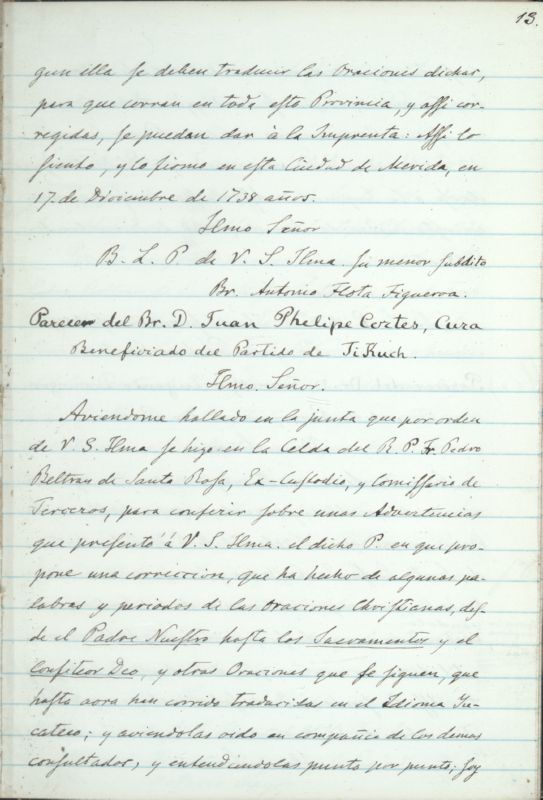 13.
gun illa se deben traducir las Oraciones dichas,
para que corran en toda esta Provincia, y assi cor-
regidas, se puedan dar à la Imprenta: Assi lo
siento, y lo firmo en esta Ciudad de Merida, en
17. de Diciembre de 1738 años.
Ilmo Señor
B. L. P. de V. S. Ilma. su menor subdito
Br. Antonio Flota Figueroa.
Parecer del Br. D. Juan Phelipe Cortes, Cura
Beneficiado del Partido de TiKuch.
Ilmo. Señor.
Aviendome hallado en la junta que por orden
de V. S. Ilma se hizo en la Celda del R. P. Fr. Pedro
Beltran de Santa Rosa, Ex-Custodio, y Comissario de
Terceros, para conferir sobre unas Advertencias
que presentó á V. S. Ilma. el dicho P. en que pro-
pone una correccion, que ha hecho de algunas pa-
labras y periodos de las Oraciones Christianas, des-
de el Padre Nuestro hasta los Sacramentos y el
Confiteor Deo, y otras Oraciones que se siguen, que
hasta aora han corrido traducidas en el Idioma Yu-
cateco; y aviendolas oido en compañia de los demas
consultados, y entendiendolas punto por punto; soy